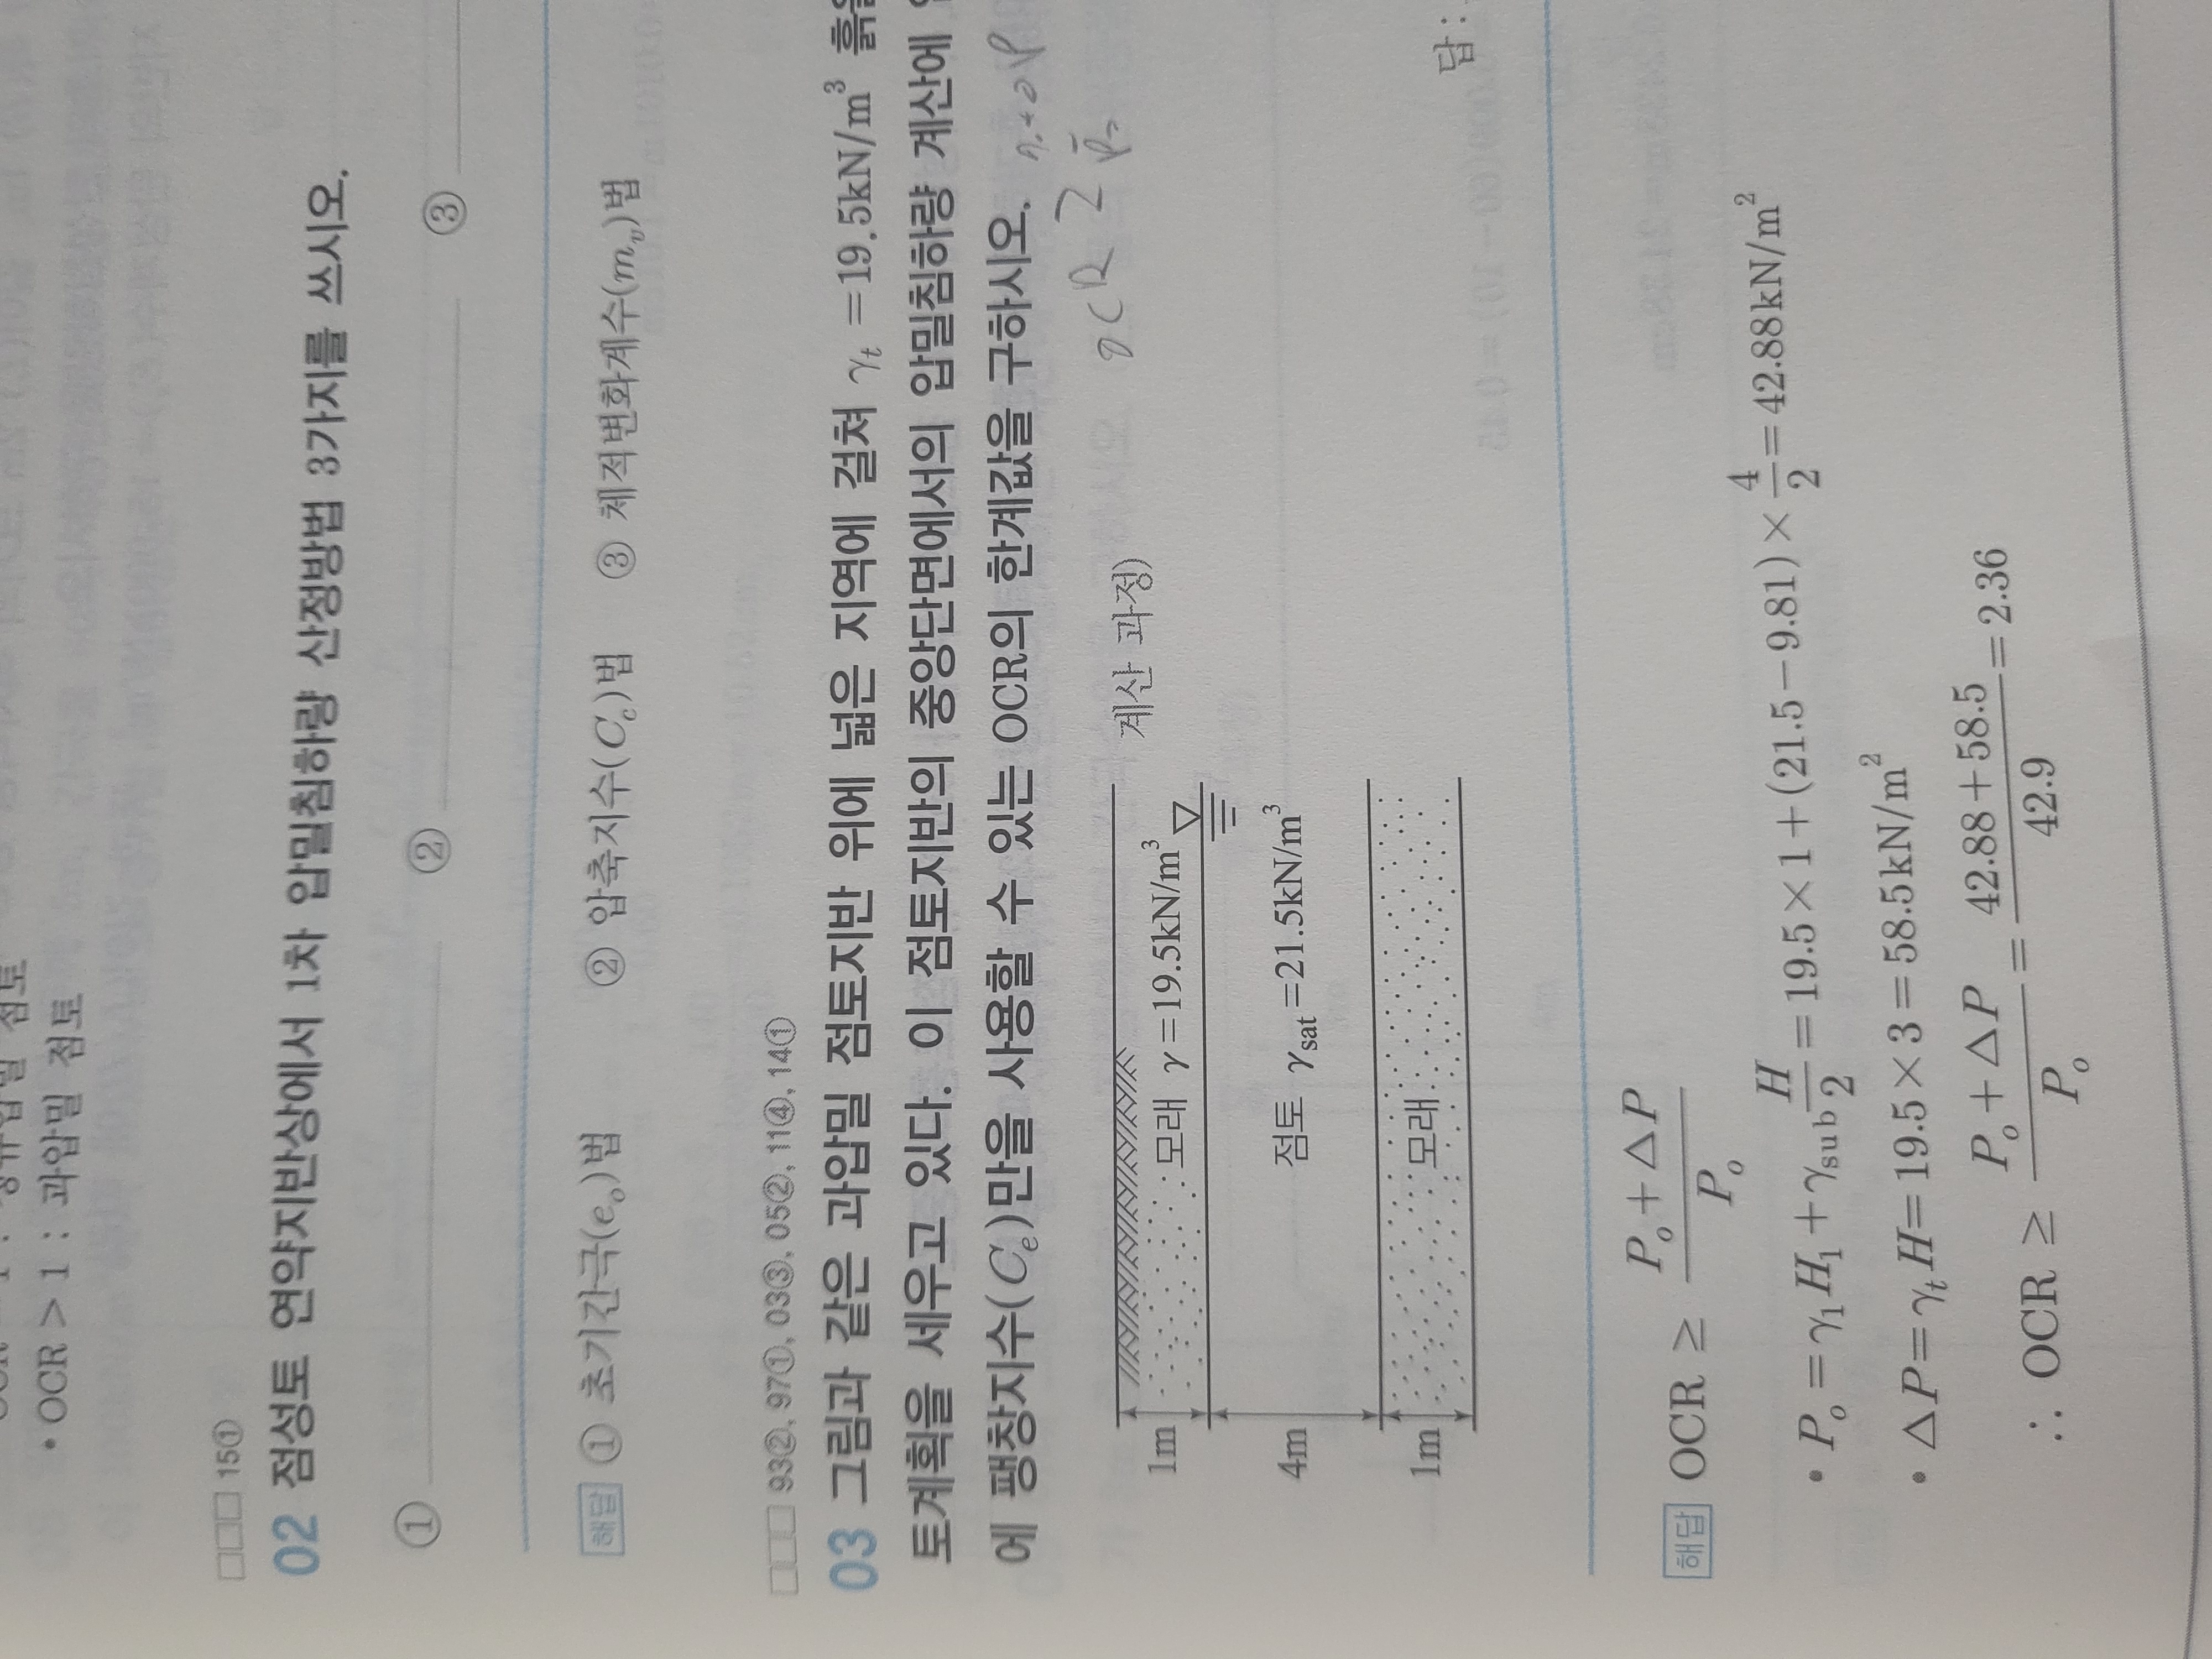 • OCR > 1 : 과압밀 점토
□□□ 15①
02 점성토 연약지반상에서 1차 압밀침하량 산정방법 3가지를 쓰시오.
① ② ③
해답 ① 초기간극(eₒ)법 ② 압축지수(C_c)법 ③ 체적변화계수(mᵥ)법
□□□ 93②, 97①, 03③, 05②, 11④, 14①
03 그림과 같은 과압밀 점토지반 위에 넓은 지역에 걸쳐 γₜ =19.5kN/m³ 흙을
토계획을 세우고 있다. 이 점토지반의 중앙단면에서의 압밀침하량 계산에
에 팽창지수(Cₑ)만을 사용할 수 있는 OCR의 한계값을 구하시오.
OCR ≥
계산 과정)
1m 모래 γ=19.5kN/m³
4m 점토 γ_sat=21.5kN/m³
1m 모래
답 :
해답 OCR ≥ (Pₒ+△P)/Pₒ
• Pₒ = γ₁H₁+γ_sub H/2 = 19.5×1+(21.5−9.81)×4/2 = 42.88kN/m²
• △P= γₜH= 19.5×3= 58.5kN/m²
∴ OCR ≥ (Pₒ+△P)/Pₒ = (42.88+58.5)/42.9 = 2.36